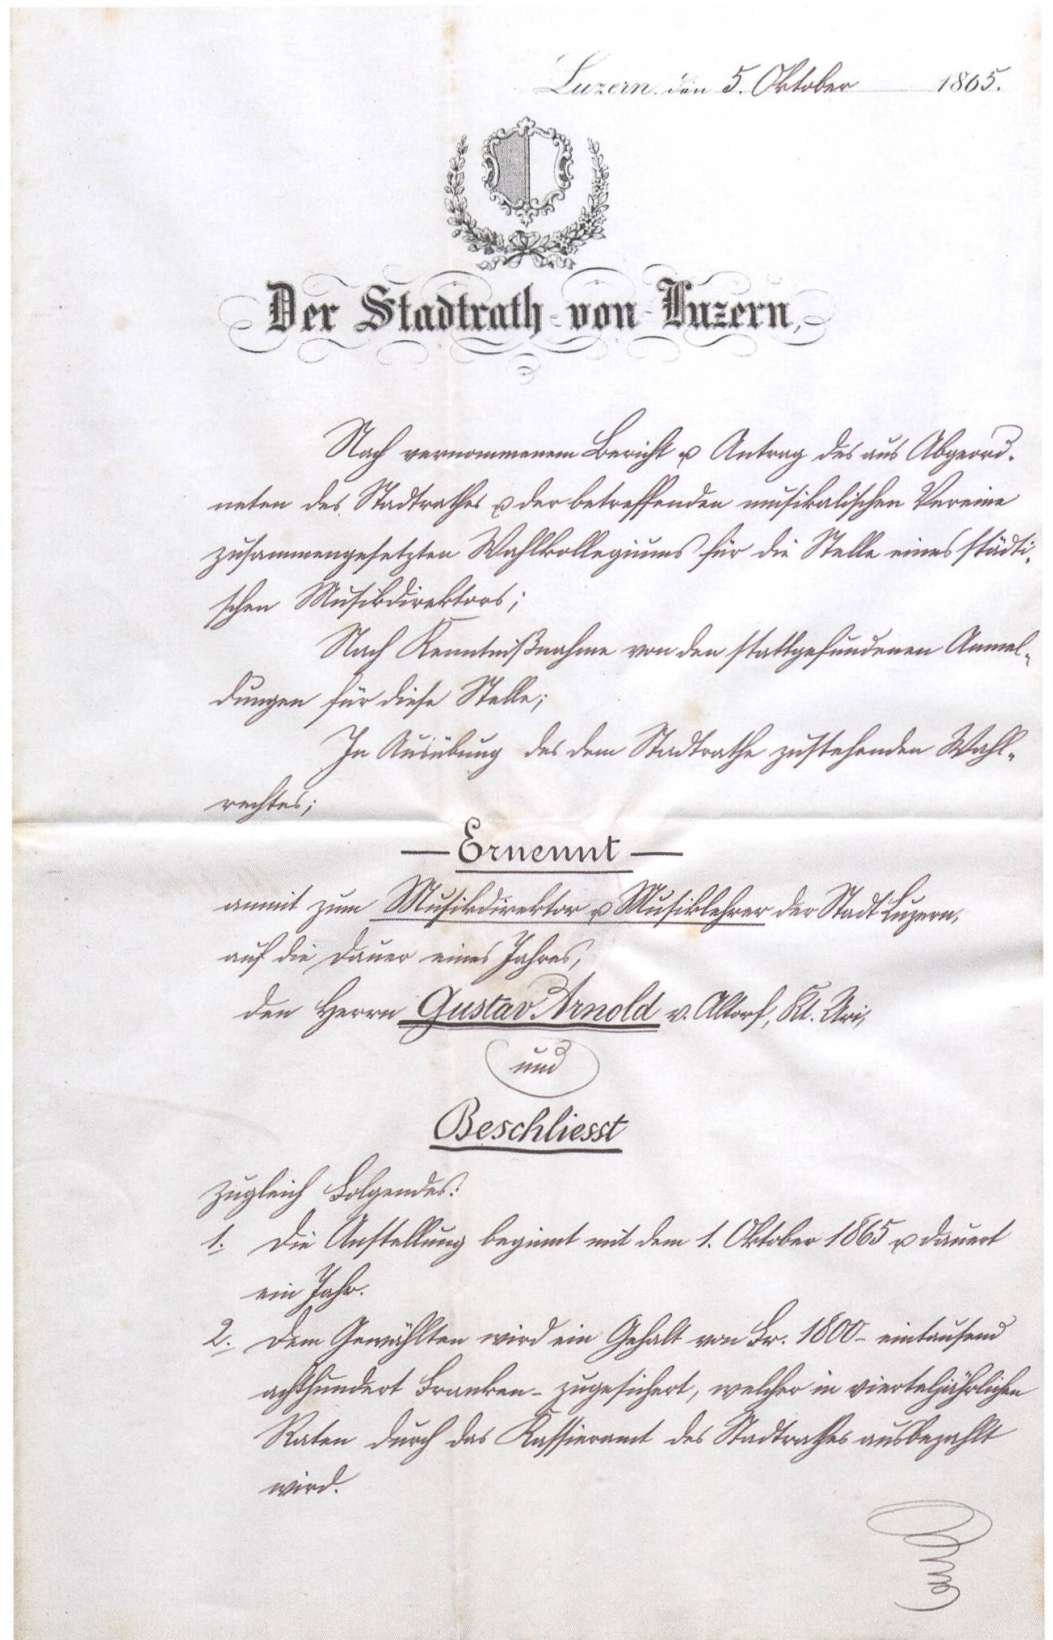 Luzern den 5. Oktober 1865.
Der Stadtrath von Luzern,
Nach vernommenem Bericht u Antrag des aus Abgeord-
neten des Stadtrathes u der betreffenden musikalischen Vereine
zusammengesetzten Wahlkollegiums für die Stelle eines städti-
schen Musikdirektors;
Nach Kenntnißnahme von den stattgefundenen Anmel-
dungen für diese Stelle;
In Ausübung des dem Stadtrathe zustehenden Wahl-
rechtes;
— Ernennt —
anmit zum Musikdirektor u Musiklehrer der Stadt Luzern,
auf die Dauer eines Jahres,
den Herrn Gustav Arnold v. Altorf, Kt. Uri,
und
Beschliesst
zugleich Folgendes:
1. Die Anstellung beginnt mit dem 1. Oktober 1865 u dauert
ein Jahr.
2. Dem Gewählten wird ein Gehalt von Fr. 1800 – eintausend
achthundert Franken – zugesichert, welcher in vierteljährlichen
Raten durch das Kassieramt des Stadtrathes ausbezahlt
wird.